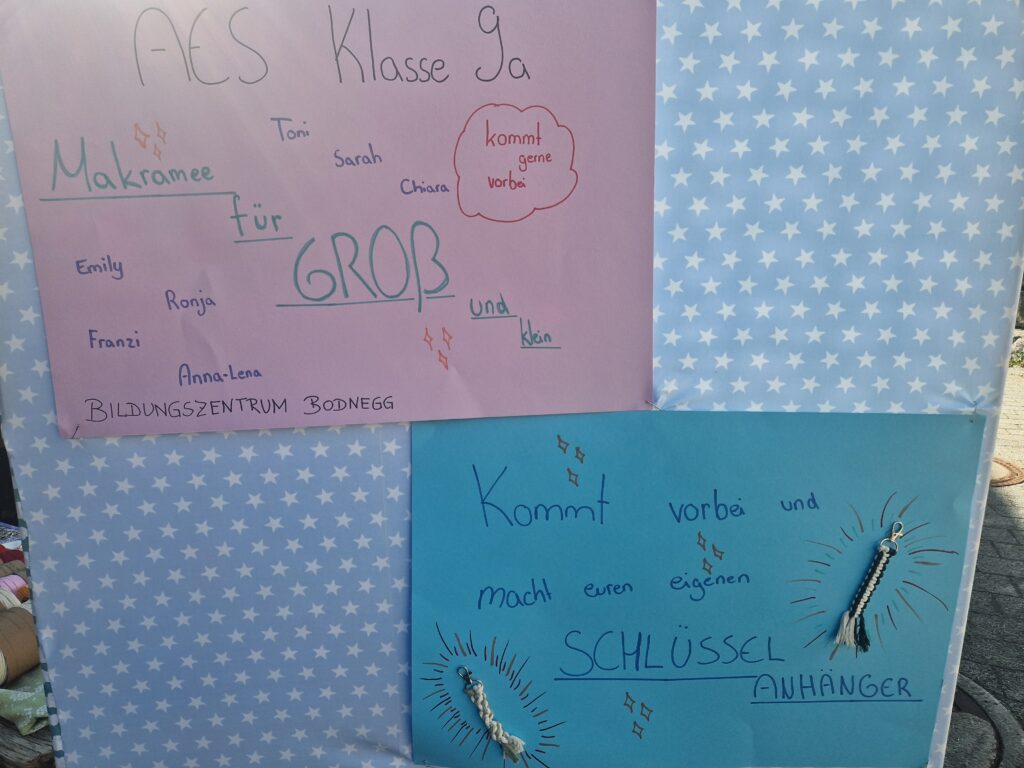 AES Klasse 9a
Toni
Sarah
Chiara
kommt
gerne
vorbei
Makramee
für
GROß
und
klein
Emily
Ronja
Franzi
Anna-Lena
BILDUNGSZENTRUM BODNEGG
Kommt vorbei und
macht euren eigenen
SCHLÜSSEL
ANHÄNGER